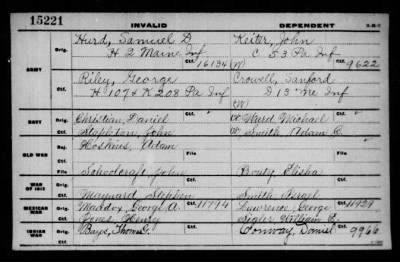 15221 INVALID DEPENDENT
Orig. Hurd, Samuel A. Keiter, John
H 2 Maine Inf C 53 Pa Inf
Ctf. 16134 (W) Ctf. 9622
ARMY
Riley, George Crowell, Sanford
Ctf. H 107 & K 208 Pa Inf D 13 Me Inf
(W)
NAVY Orig. Christian, Daniel Ward Michael
Ctf. Stapleton, John Smith Adam C.
OLD WAR Rej. Hoskins, Adam
File File
Schoolcraft, John Bouty Elisha
WAR OF 1812
Maynard Stephen Smith Israel
MEXICAN WAR Orig. Maddox, George A. Ctf. 11794 Lawrence, George Ctf. 11929
Ctf. Jones, Henry Sigler, William E.
INDIAN WAR Orig. Bays, Thom G. Conway, Daniel Ctf. 9966
Ctf.